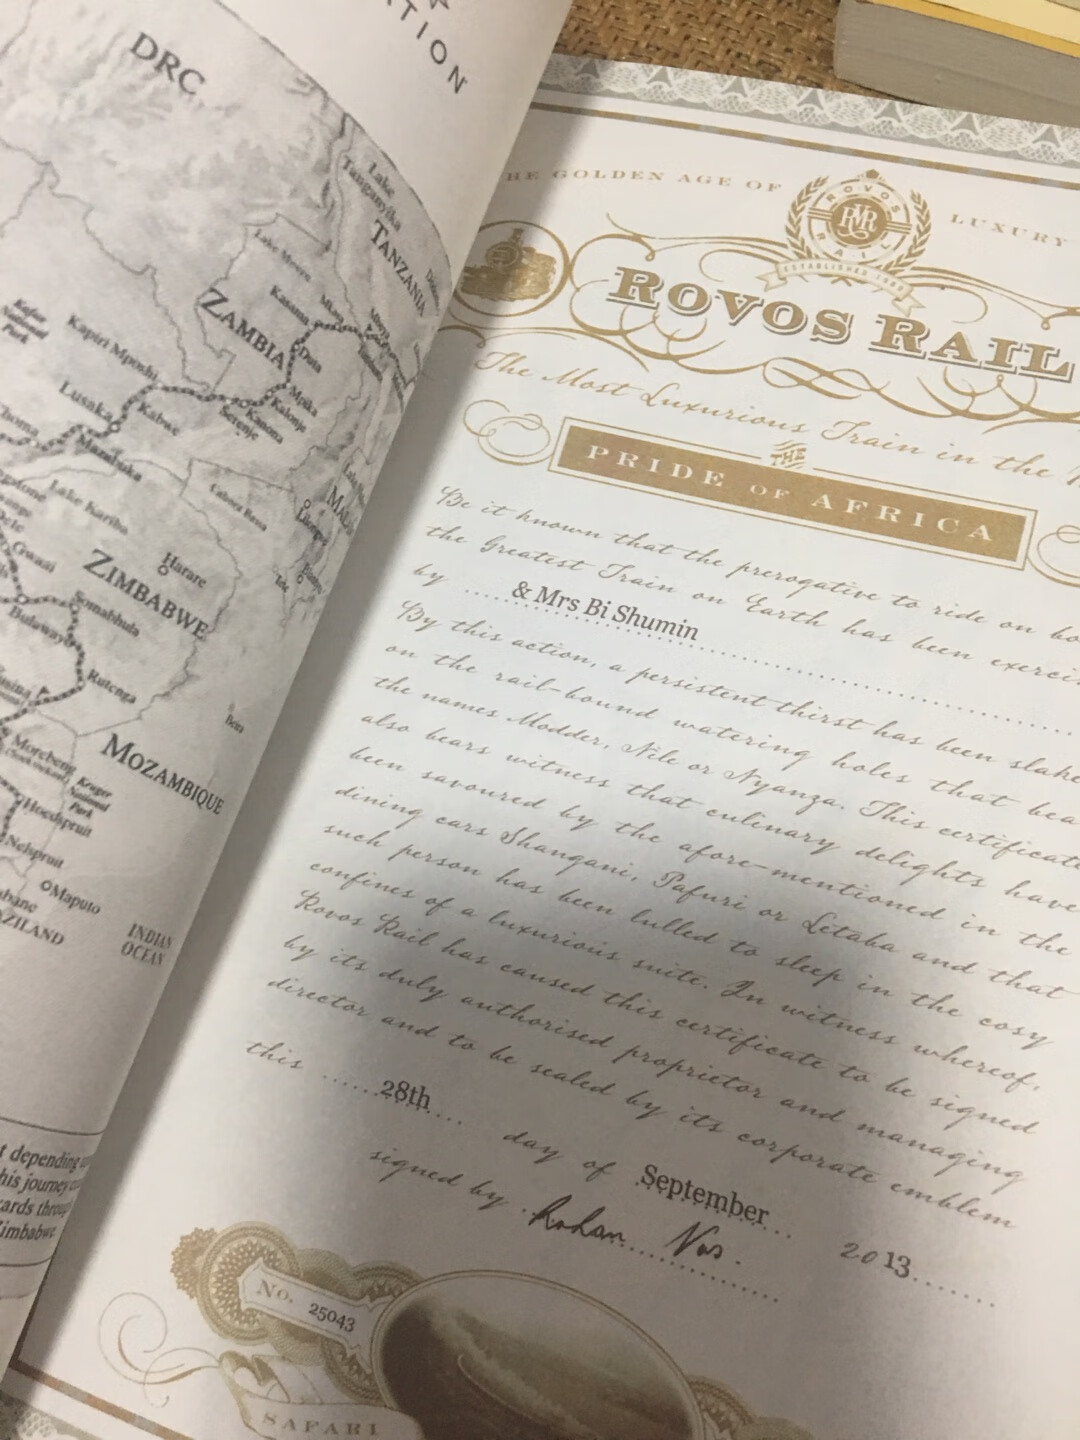 DRC
Lake
Tanganyika
TANZANIA
Kasama
ZAMBIA
Kafue
National
Park
Kapiri Mposhi
Mpika
Kalonje
Kanona
Serenje
Lusaka
Kabwe
Choma
Mazabuka
Lake Kariba
Cabora Bassa
Harare
ZIMBABWE
Gwaai
Somabhula
Bulawayo
Rutenga
Beira
MOZAMBIQUE
Kruger
National
Park
Hoedspruit
Nelspruit
Maputo
INDIAN
OCEAN
GOLDEN AGE OF
LUXURY
ROVOS
RVR
RAIL
ROVOS RAIL
The Most Luxurious Train in the
THE
PRIDE OF AFRICA
Be it known that the prerogative to ride on
the Greatest Train on Earth has been
by & Mrs Bi Shumin
By this action, a persistent thirst has been
on the rail-bound watering holes that
the names Modder, Nile or Nyanza. This certificate
also bears witness that culinary delights have
been savoured by the afore-mentioned in the
dining cars Shangani, Pafuri or Letaba and that
such person has been lulled to sleep in the cosy
confines of a luxurious suite. In witness whereof,
Rovos Rail has caused this certificate to be signed
by its duly authorised proprietor and managing
director and to be sealed by its corporate emblem
this 28th day of September 2013
signed by Rohan Vos
No. 25043
SAFARI